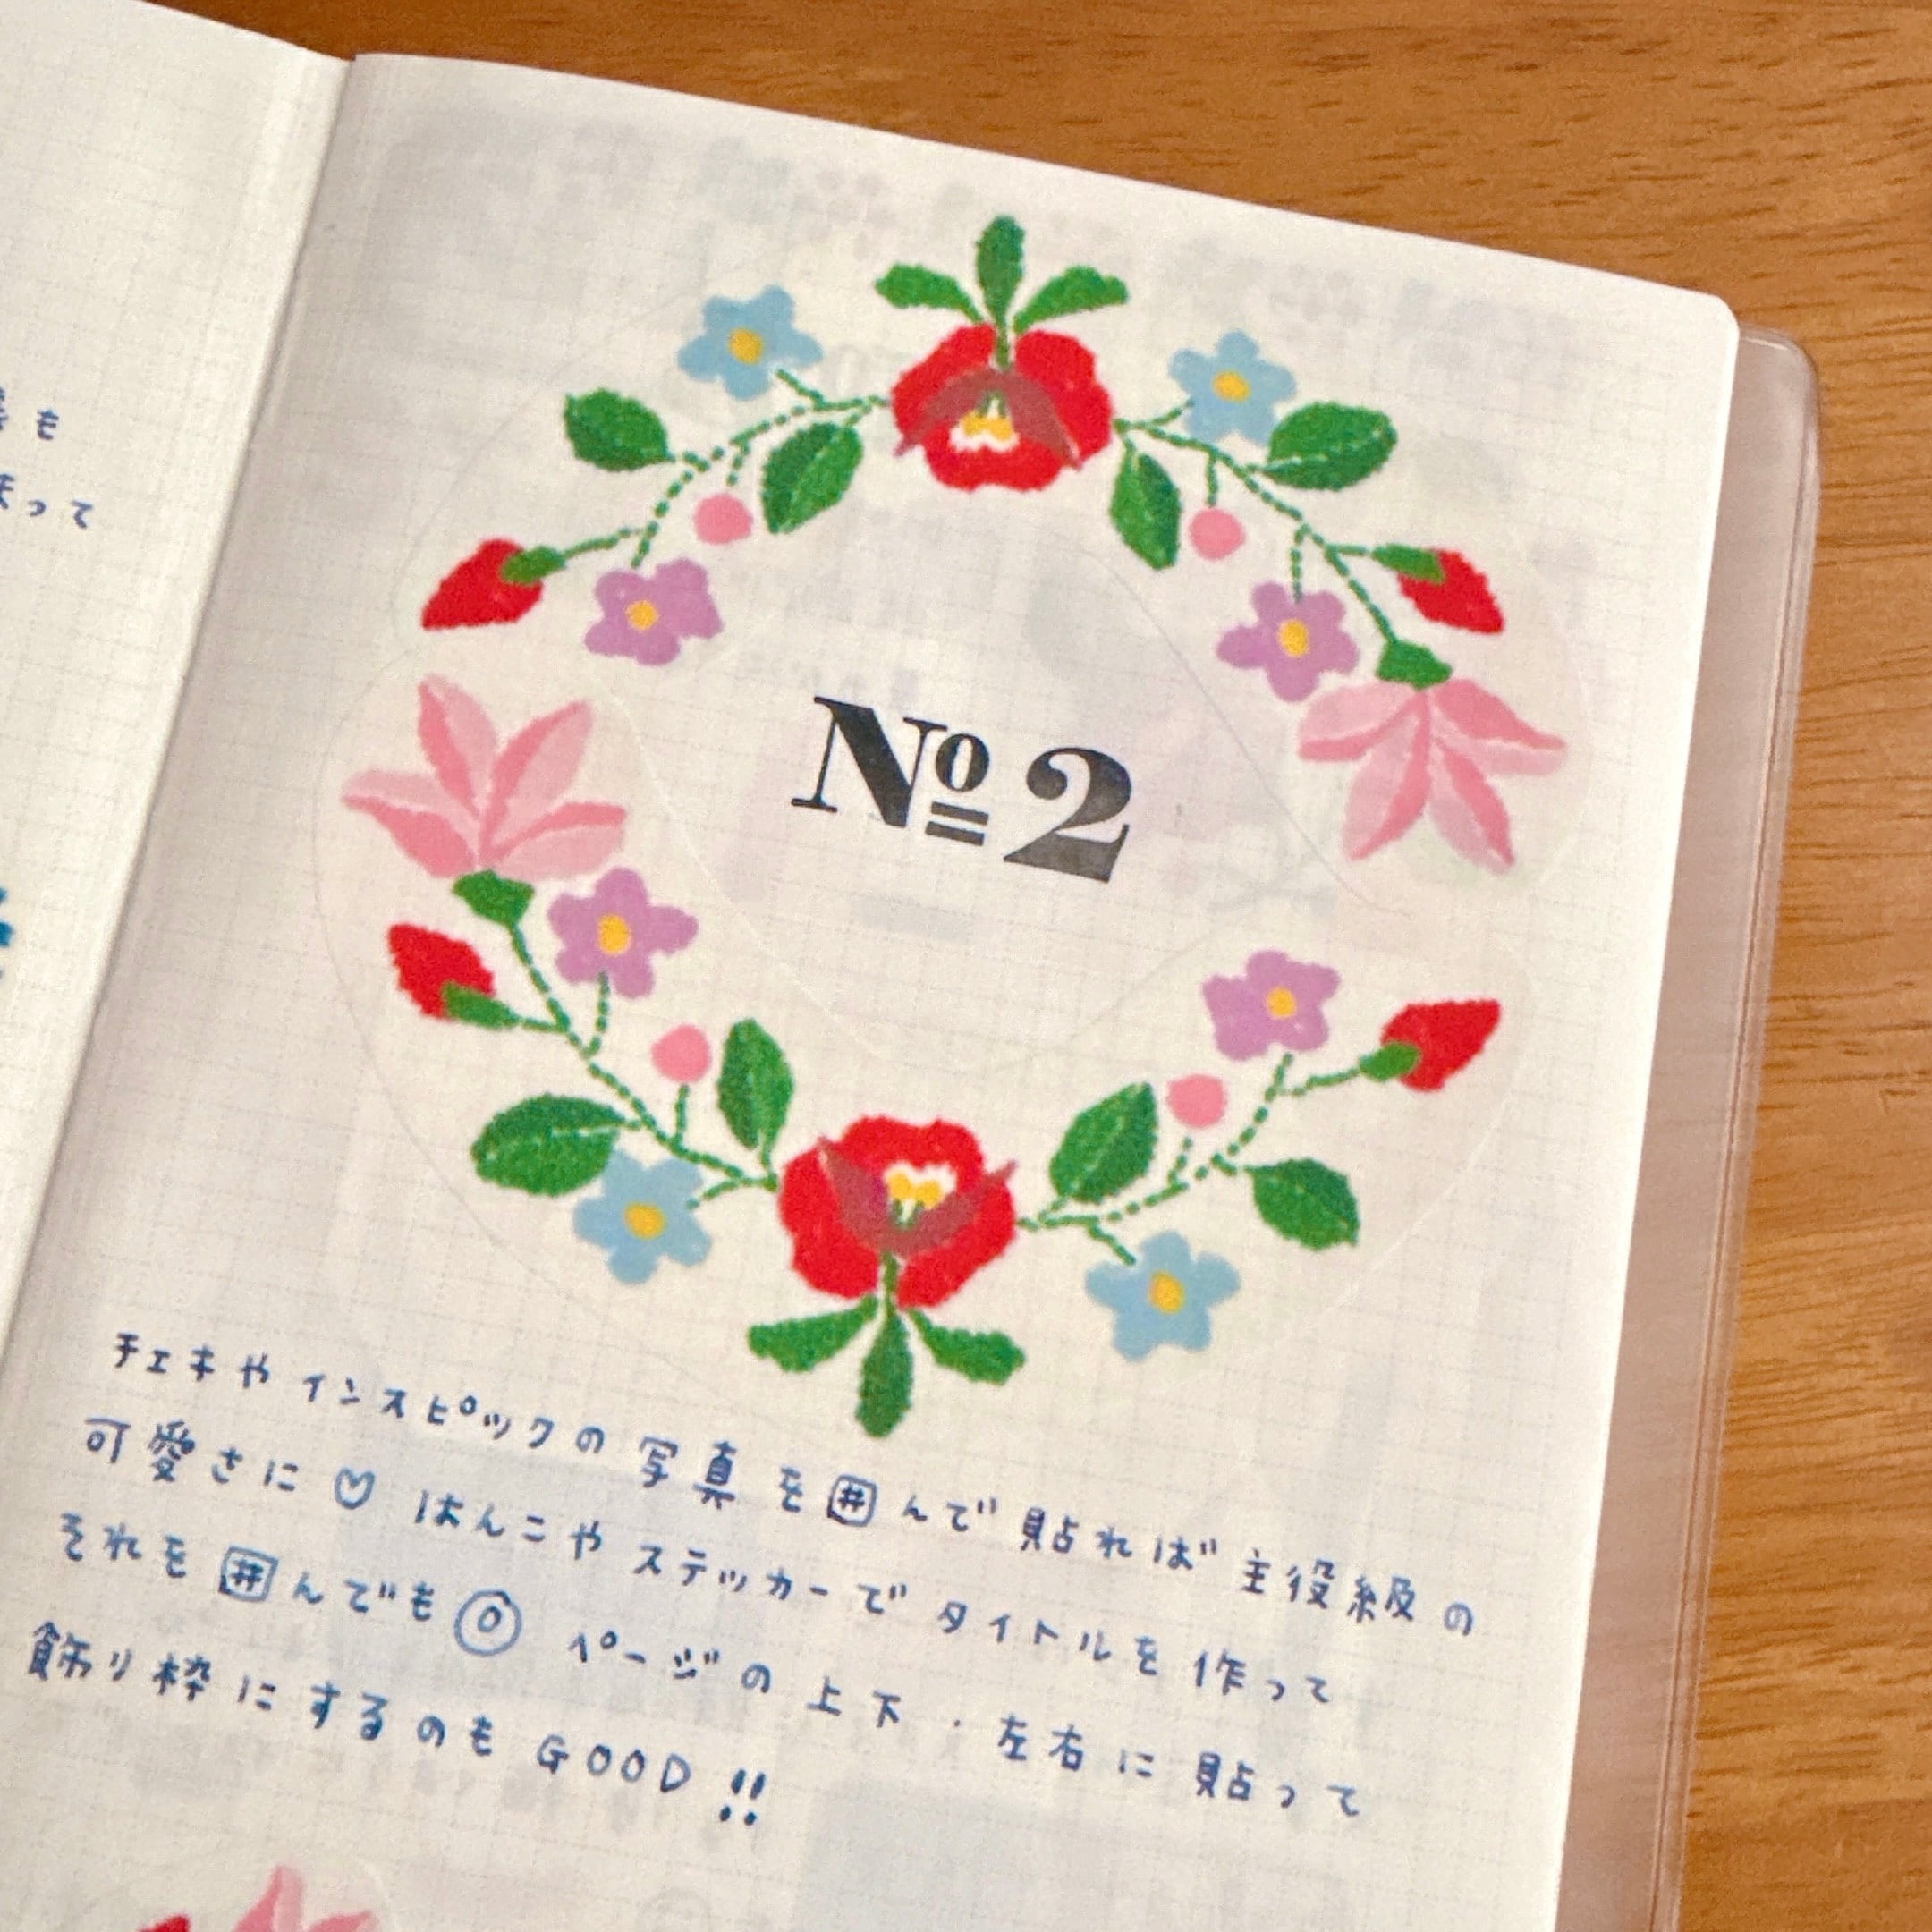 も
って
№2
チェキやインスピックの写真を囲んで貼れば主役級の
可愛さに♡ はんこやステッカーでタイトルを作って
それを囲んでも◎ ページの上下・左右に貼って
飾り枠にするのもGOOD!!